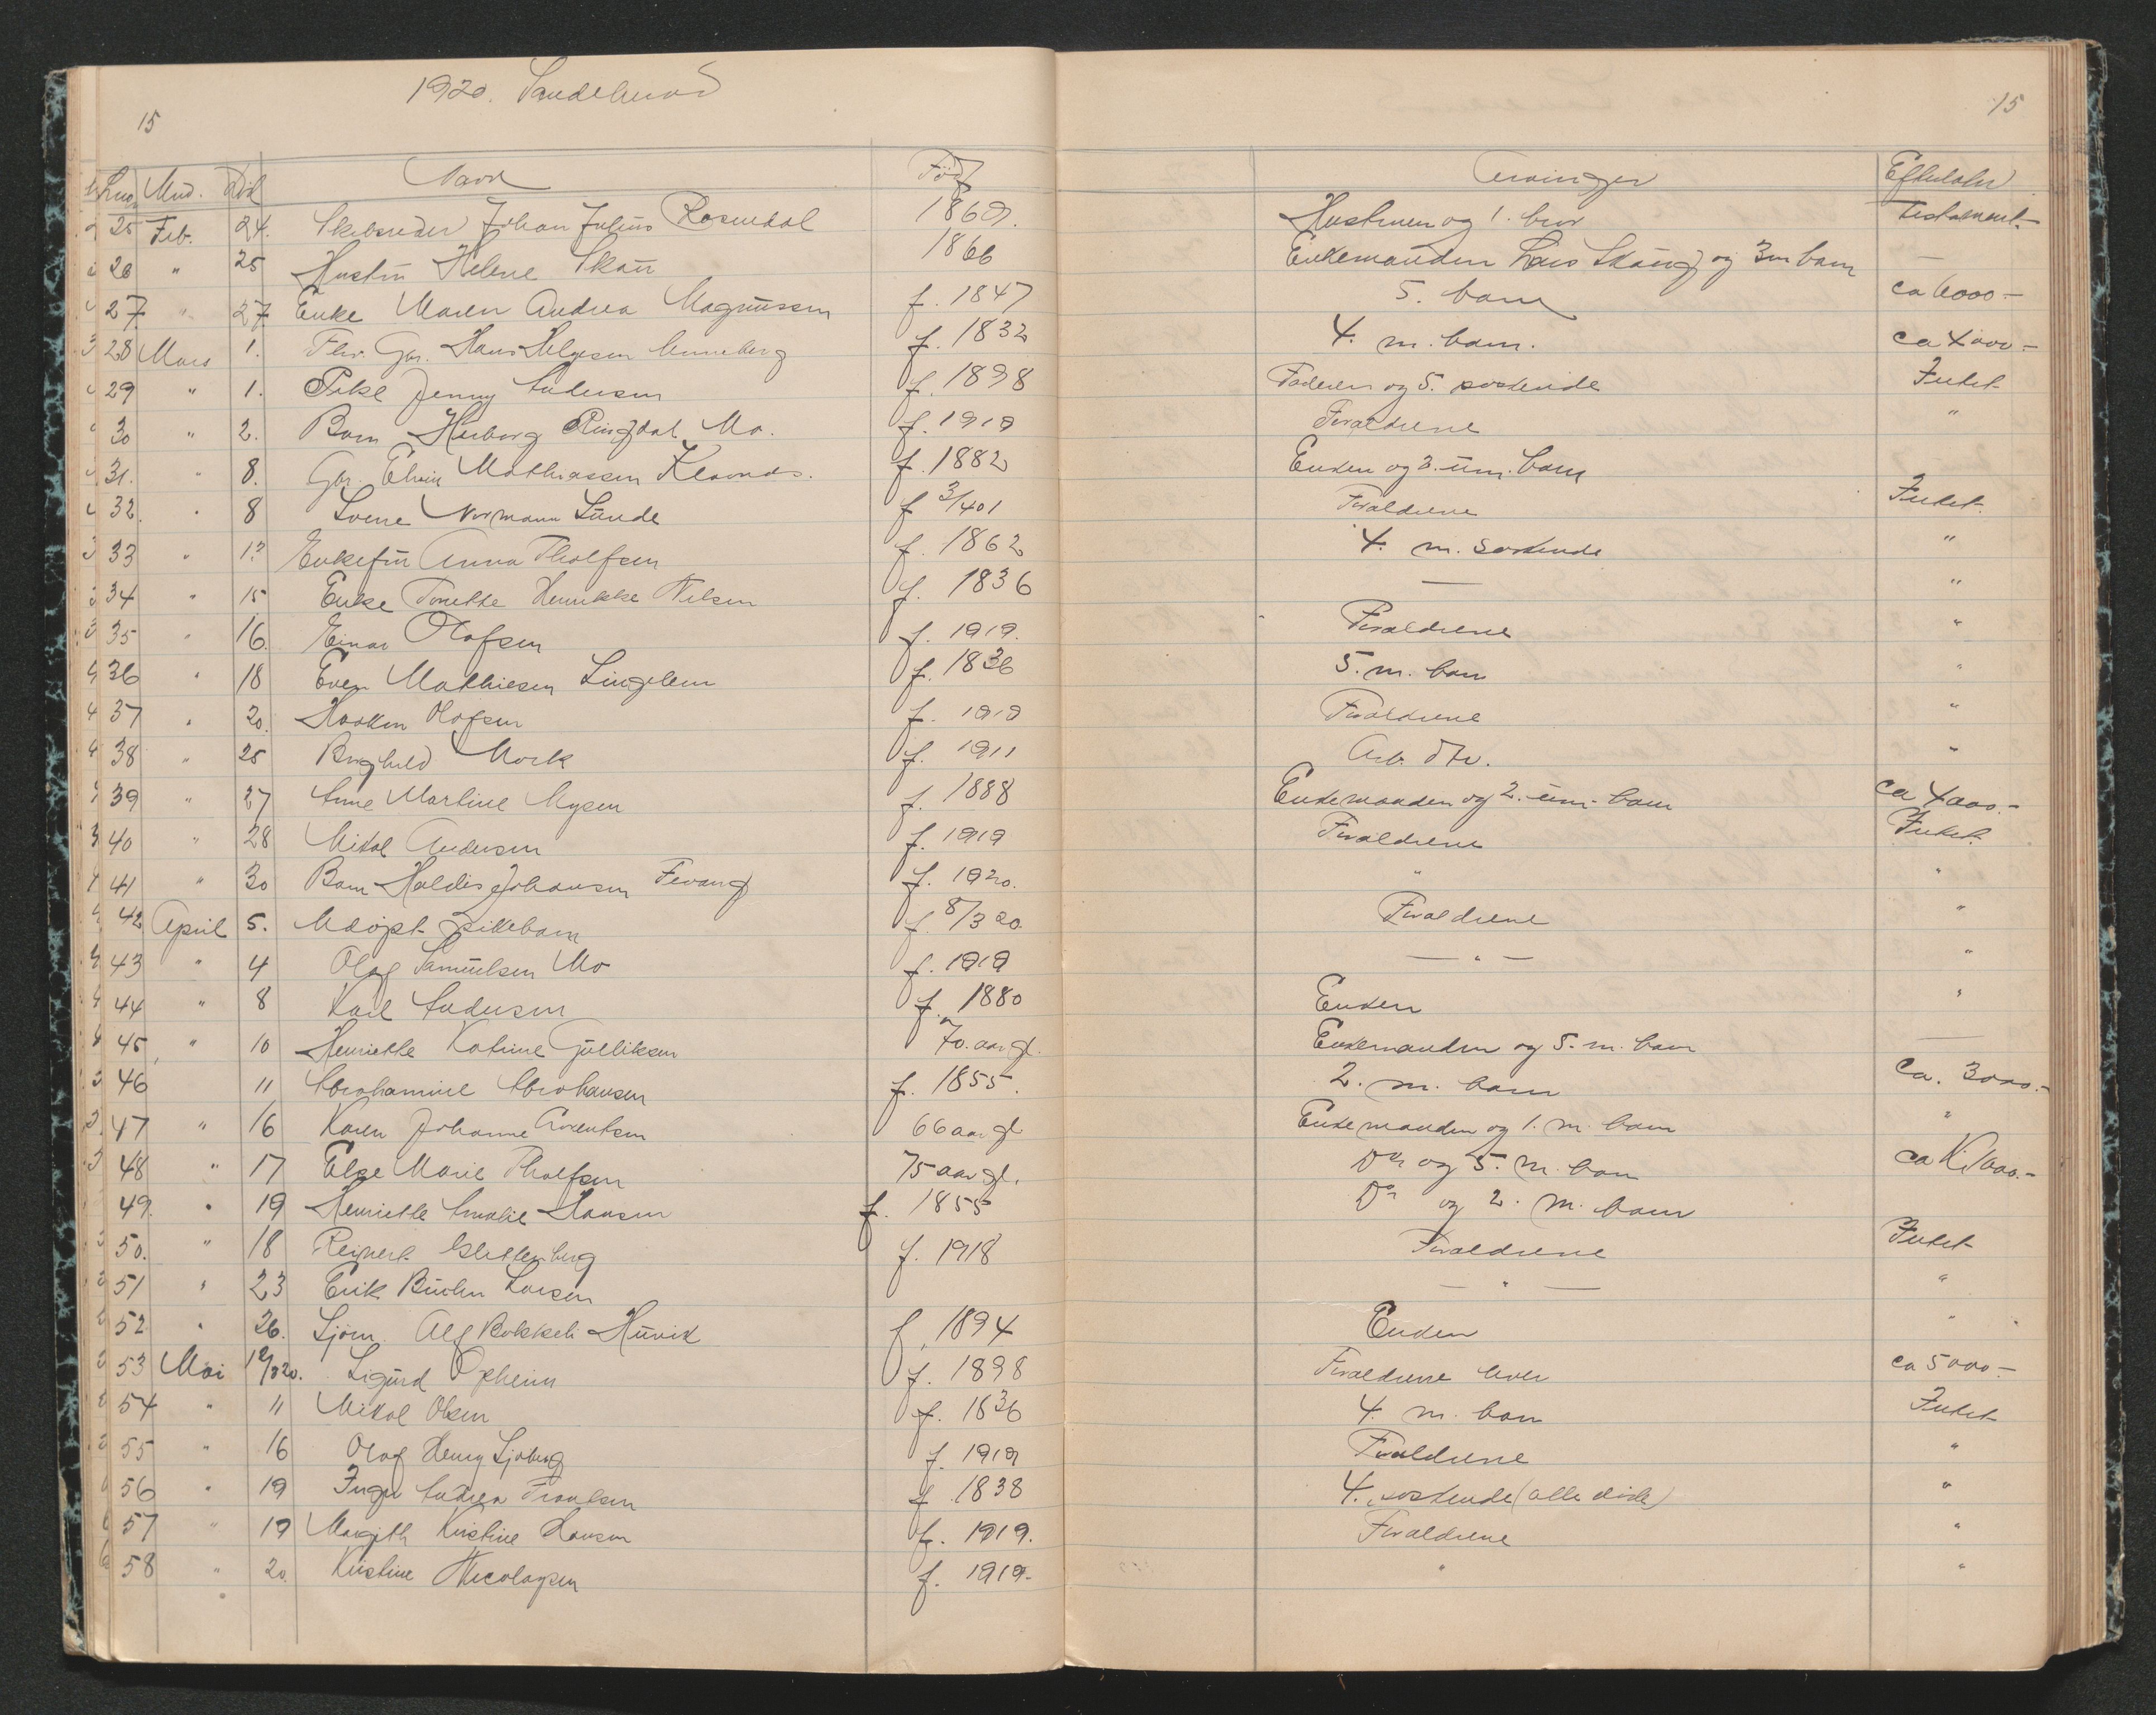 1920. Sandeherred
15
15
Lno. Mnd. Død Navn Født Arvinger Efterlater
25 Feb. 24. Skibsreder Johan Julius Rosendal 1869. Hustruen og 1. bror Testament.
26 " 25 Hustru Helene Skau 1866 Enkemanden Lars Skaug og 3 m barn —
27 " 27 Enke Maren Andrea Magnussen f. 1847 5. barn ca 6000 —
28 Mars 1. Fhv. Gbr. Hans Helgesen Unneberg f. 1832 4. m. barn. ca 4000 —
29 " 1. Pike Jenny Andersen f. 1898 Faderen og 5. søskende Intet
30 " 2. Barn Herborg Ringdal Mo. f. 1919 Foraldrene "
31. " 8. Gbr. Elvin Mathiassen Klavnæs. f. 1882 Enken og 3. um. barn
32. " 8 Sverre Normann Lunde f 3/4 01 Foraldrene Intet.
33 " 12 Enkefru Anna Tholfsen f. 1862 4. m. Søskende "
34 " 15 Enke Tonette Henrikke Nilsen f. 1836 — "
35 " 16. Einar Olafsen f. 1919. Foraldrene "
36 " 18 Even Mathiesen Lingelem f. 1836 5. m. barn "
37 " 20. Haakon Olafsen f. 1919 Foraldrene "
38 " 25 Borghild Mork f. 1911 Arb. "
39 " 27 Anne Martine Mysen f. 1888 Enkemanden og 2. um. barn ca 4000.-
40 " 28 Mikal Andersen f. 1919 Foraldrene Intet.
41 " 30 Barn Haldis Johansen Fevang f. 1920. " "
42 April 5. Udøpt Pikebarn f. 8/3 20. Foraldrene "
43 " 4 Olaf Samuelsen Mo f. 1919 — " — "
44 " 8 Karl Andersen f. 1880 Enken "
45 " 10 Henriette Katrine Gulliksen 70. aar gl. Enkemanden og 5. m. barn —
46 11 Abrahamine Abrahamsen f. 1855. 2. m. barn Ca. 3000.-
47 " 16 Karen Johanne Arentsen 66 aar gl Enkemanden og 1. m. barn "
48 " 17 Else Marie Tholfsen 75 aar gl. Do og 5. m. barn ca Kr 1000.-
49. " 19 Henriette Amalie Hansen f. 1855 Do og 2. m. barn
50. " 18 Reinert Slettenberg f. 1918 Foraldrene Intet
51 " 23 Erik Larsen — " — "
52 " 26. Sjøm. Alf Hauvik f. 1894 Enken "
53 Mai 12/3 20. Sigurd Opheim f. 1898 Foraldrene lever ca 5000 —
54 " 11 Mikal Olsen f. 1836 4. m. barn Intet
55 " 16 Olaf Henry Sjøberg f. 1919 Foraldrene "
56 " 19 Inger Andrea Frantsen f. 1838 4. søskende (alle døde) "
57 " 19 Margith Kristine Hansen f. 1919. Foraldrene "
58 " 20. Kristine Nicolaysen f. 1919. " "